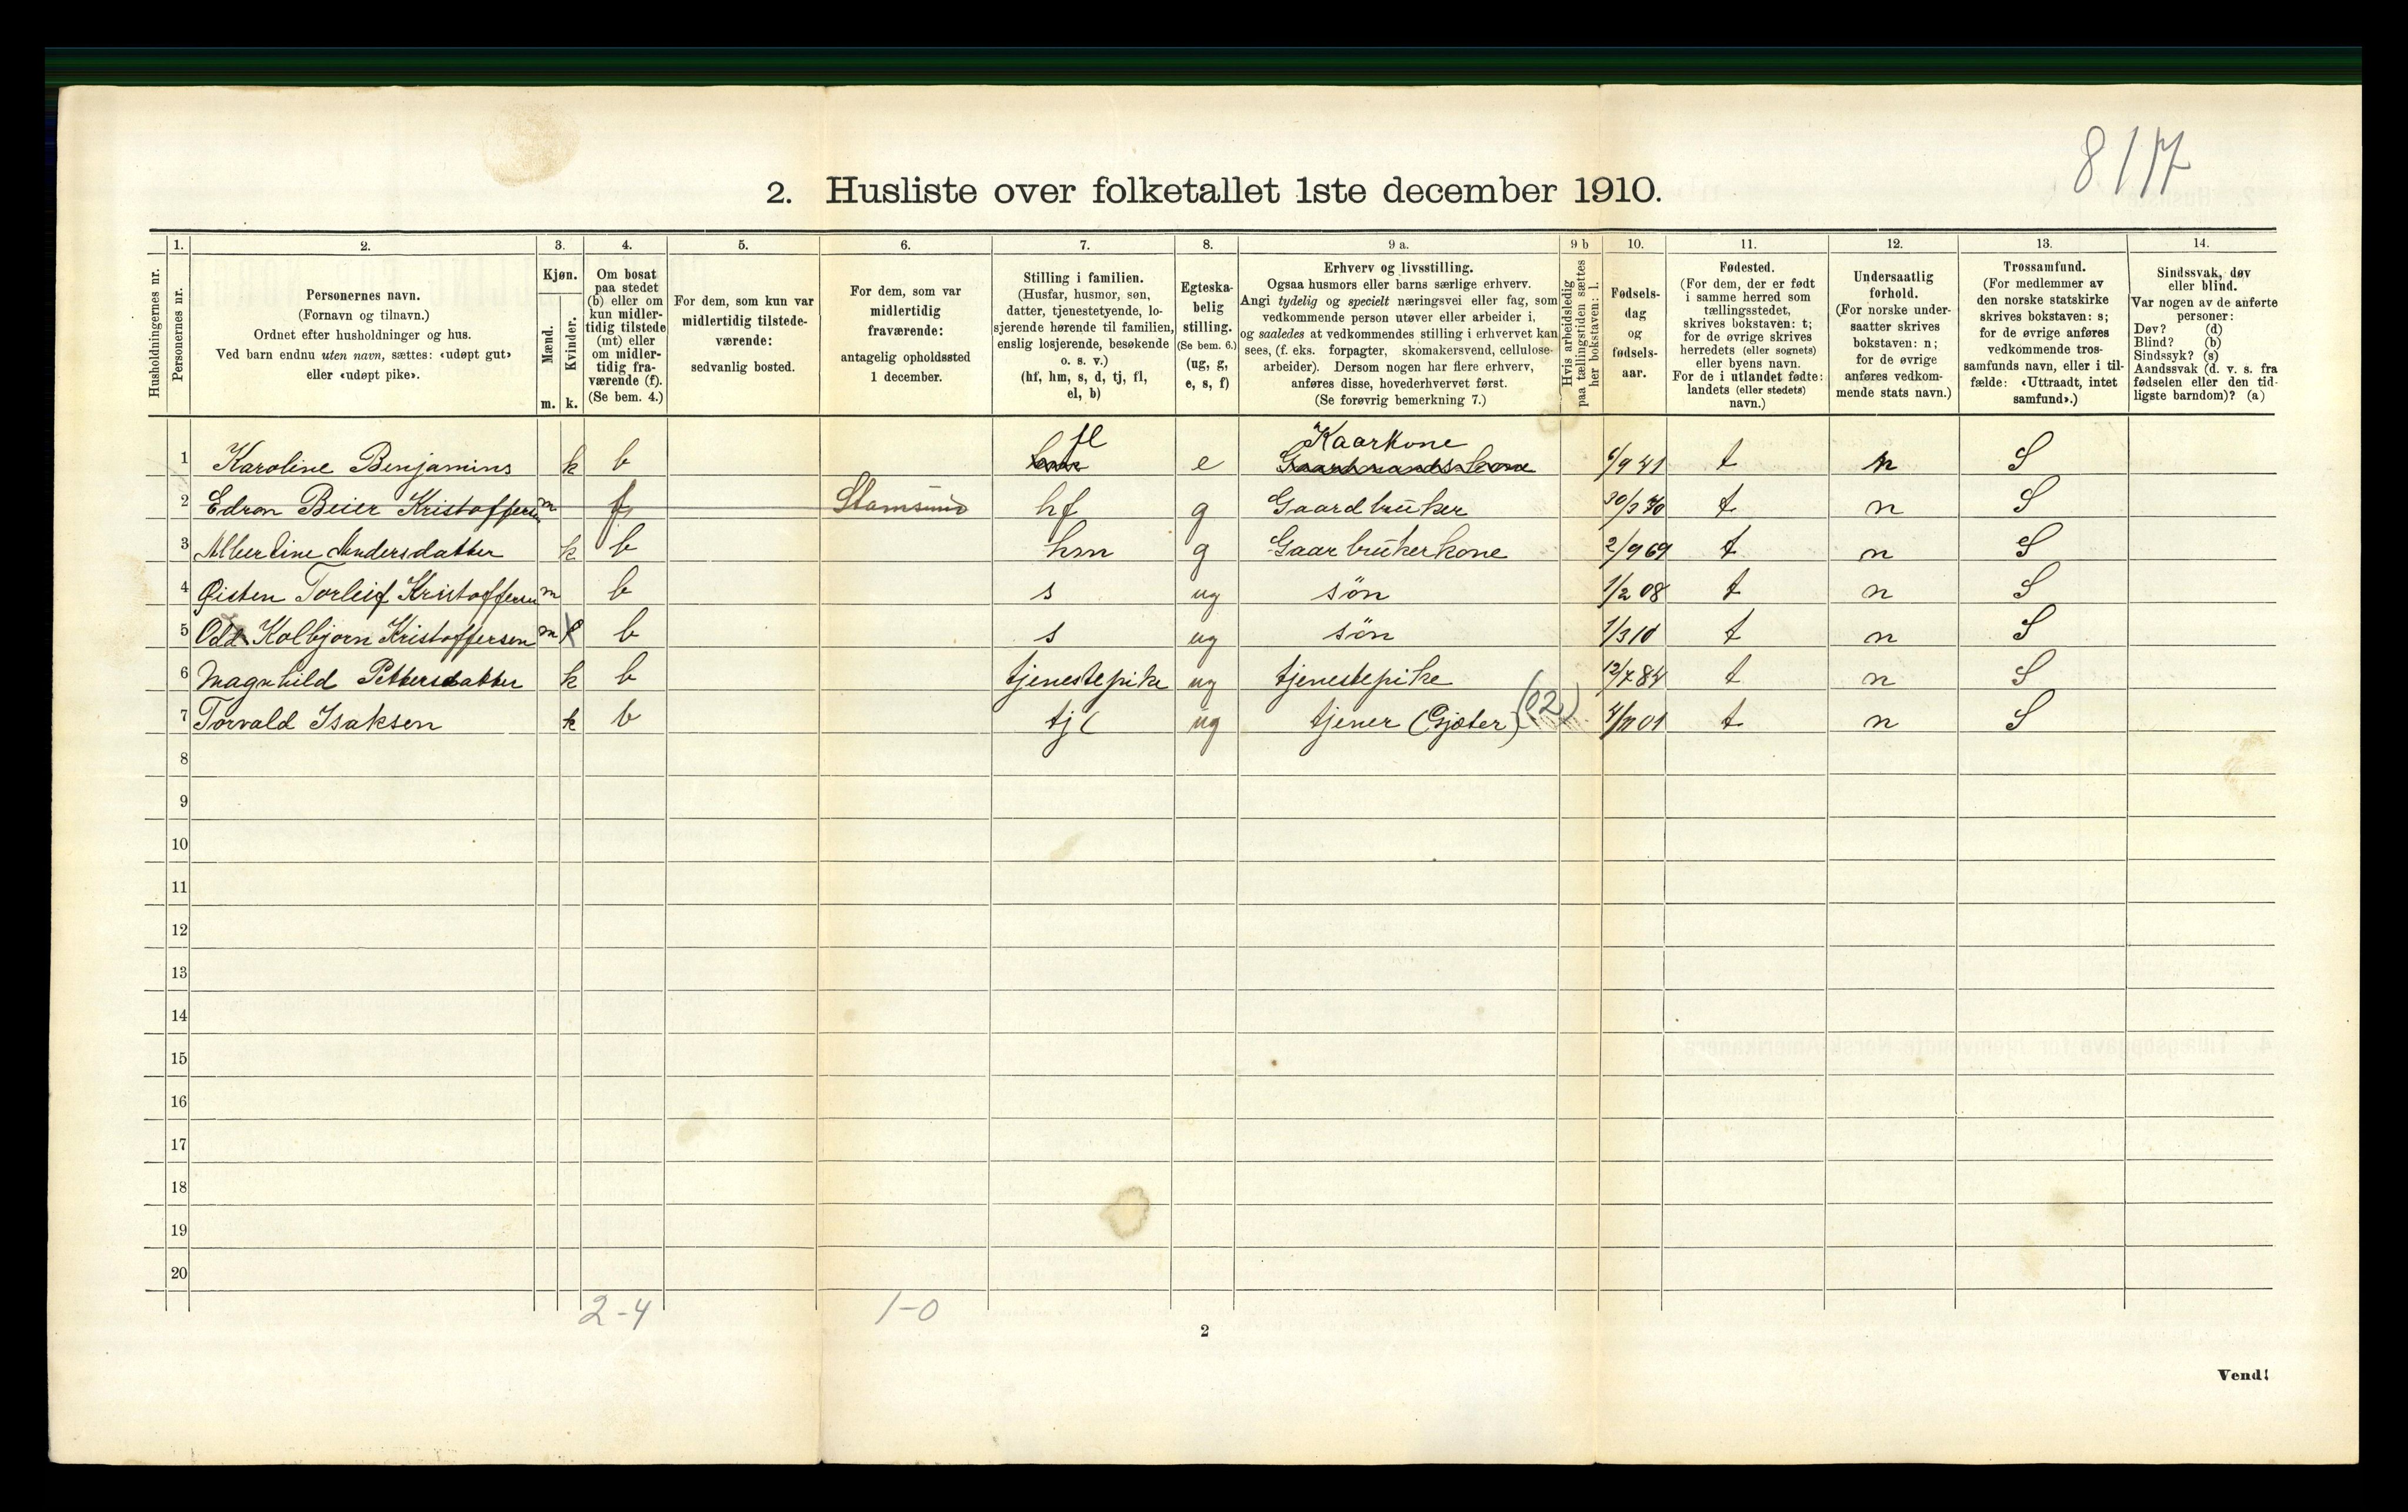 8/17
2. Husliste over folketallet 1ste december 1910.
Husholdningernes nr.
1. Personernes nr.
2. Personernes navn.
(Fornavn og tilnavn.)
Ordnet efter husholdninger og hus.
Ved barn endnu uten navn, sættes: «udøpt gut»
eller «udøpt pike».
3. Kjøn.
Mænd. m.
Kvinder. k.
4. Om bosat
paa stedet
(b) eller om
kun midler-
tidig tilstede
(mt) eller
om midler-
tidig fra-
værende (f).
(Se bem. 4.)
5. For dem, som kun var
midlertidig tilstede-
værende:
sedvanlig bosted.
6. For dem, som var
midlertidig
fraværende:
antagelig opholdssted
1 december.
7. Stilling i familien.
(Husfar, husmor, søn,
datter, tjenestetyende, lo-
sjerende hørende til familien,
enslig losjerende, besøkende
o. s. v.)
(hf, hm, s, d, tj, fl,
el, b)
8. Egteska-
belig
stilling.
(Se bem. 6.)
(ug, g,
e, s, f)
9 a. Erhverv og livsstilling.
Ogsaa husmors eller barns særlige erhverv.
Angi tydelig og specielt næringsvei eller fag, som
vedkommende person utøver eller arbeider i,
og saaledes at vedkommendes stilling i erhvervet kan
sees, (f. eks. forpagter, skomakersvend, cellulose-
arbeider). Dersom nogen har flere erhverv,
anføres disse, hovederhvervet først.
(Se forøvrig bemerkning 7.)
9 b Hvis arbeidsledig
paa tællingstiden sættes
her bokstaven: l.
10. Fødsels-
dag
og
fødsels-
aar.
11. Fødested.
(For dem, der er født
i samme herred som
tællingsstedet,
skrives bokstaven: t;
for de øvrige skrives
herredets (eller sognets)
eller byens navn.
For de i utlandet fødte:
landets (eller stedets)
navn.)
12. Undersaatlig
forhold.
(For norske under-
saatter skrives
bokstaven: n;
for de øvrige
anføres vedkom-
mende stats navn.)
13. Trossamfund.
(For medlemmer av
den norske statskirke
skrives bokstaven: s;
for de øvrige anføres
vedkommende tros-
samfunds navn, eller i til-
fælde: «Uttraadt, intet
samfund».)
14. Sindssvak, døv
eller blind.
Var nogen av de anførte
personer:
Døv? (d)
Blind? (b)
Sindssyk? (s)
Aandssvak (d. v. s. fra
fødselen eller den tid-
ligste barndom)? (a)
fl Kaarkone
1 Karoline Benjamins k b e Gaardmandskone 6/9 41 t n S
2 Edron Beier Kristoffersen m f Stamsund hf g Gaardbruker 30/3 70 t n S
3 Albertine Andersdatter k b hm g Gaarbrukerkone 2/9 69 t n S
4 Øisten Torleif Kristoffersen m b s ug søn 1/2 08 t n S
5 Odd Kolbjørn Kristoffersen m b s ug søn 1/3 10 t n S
6 Magnhild Pettersdatter k b tjenestepike ug tjenestepike 12/7 84 t n S
7 Torvald Isaksen k b tj ug tjener (Gjæter) (02) 4/11 01 t n S
8
9
10
11
12
13
14
15
16
17
18
19
20
2-4 1-0
2
Vend!